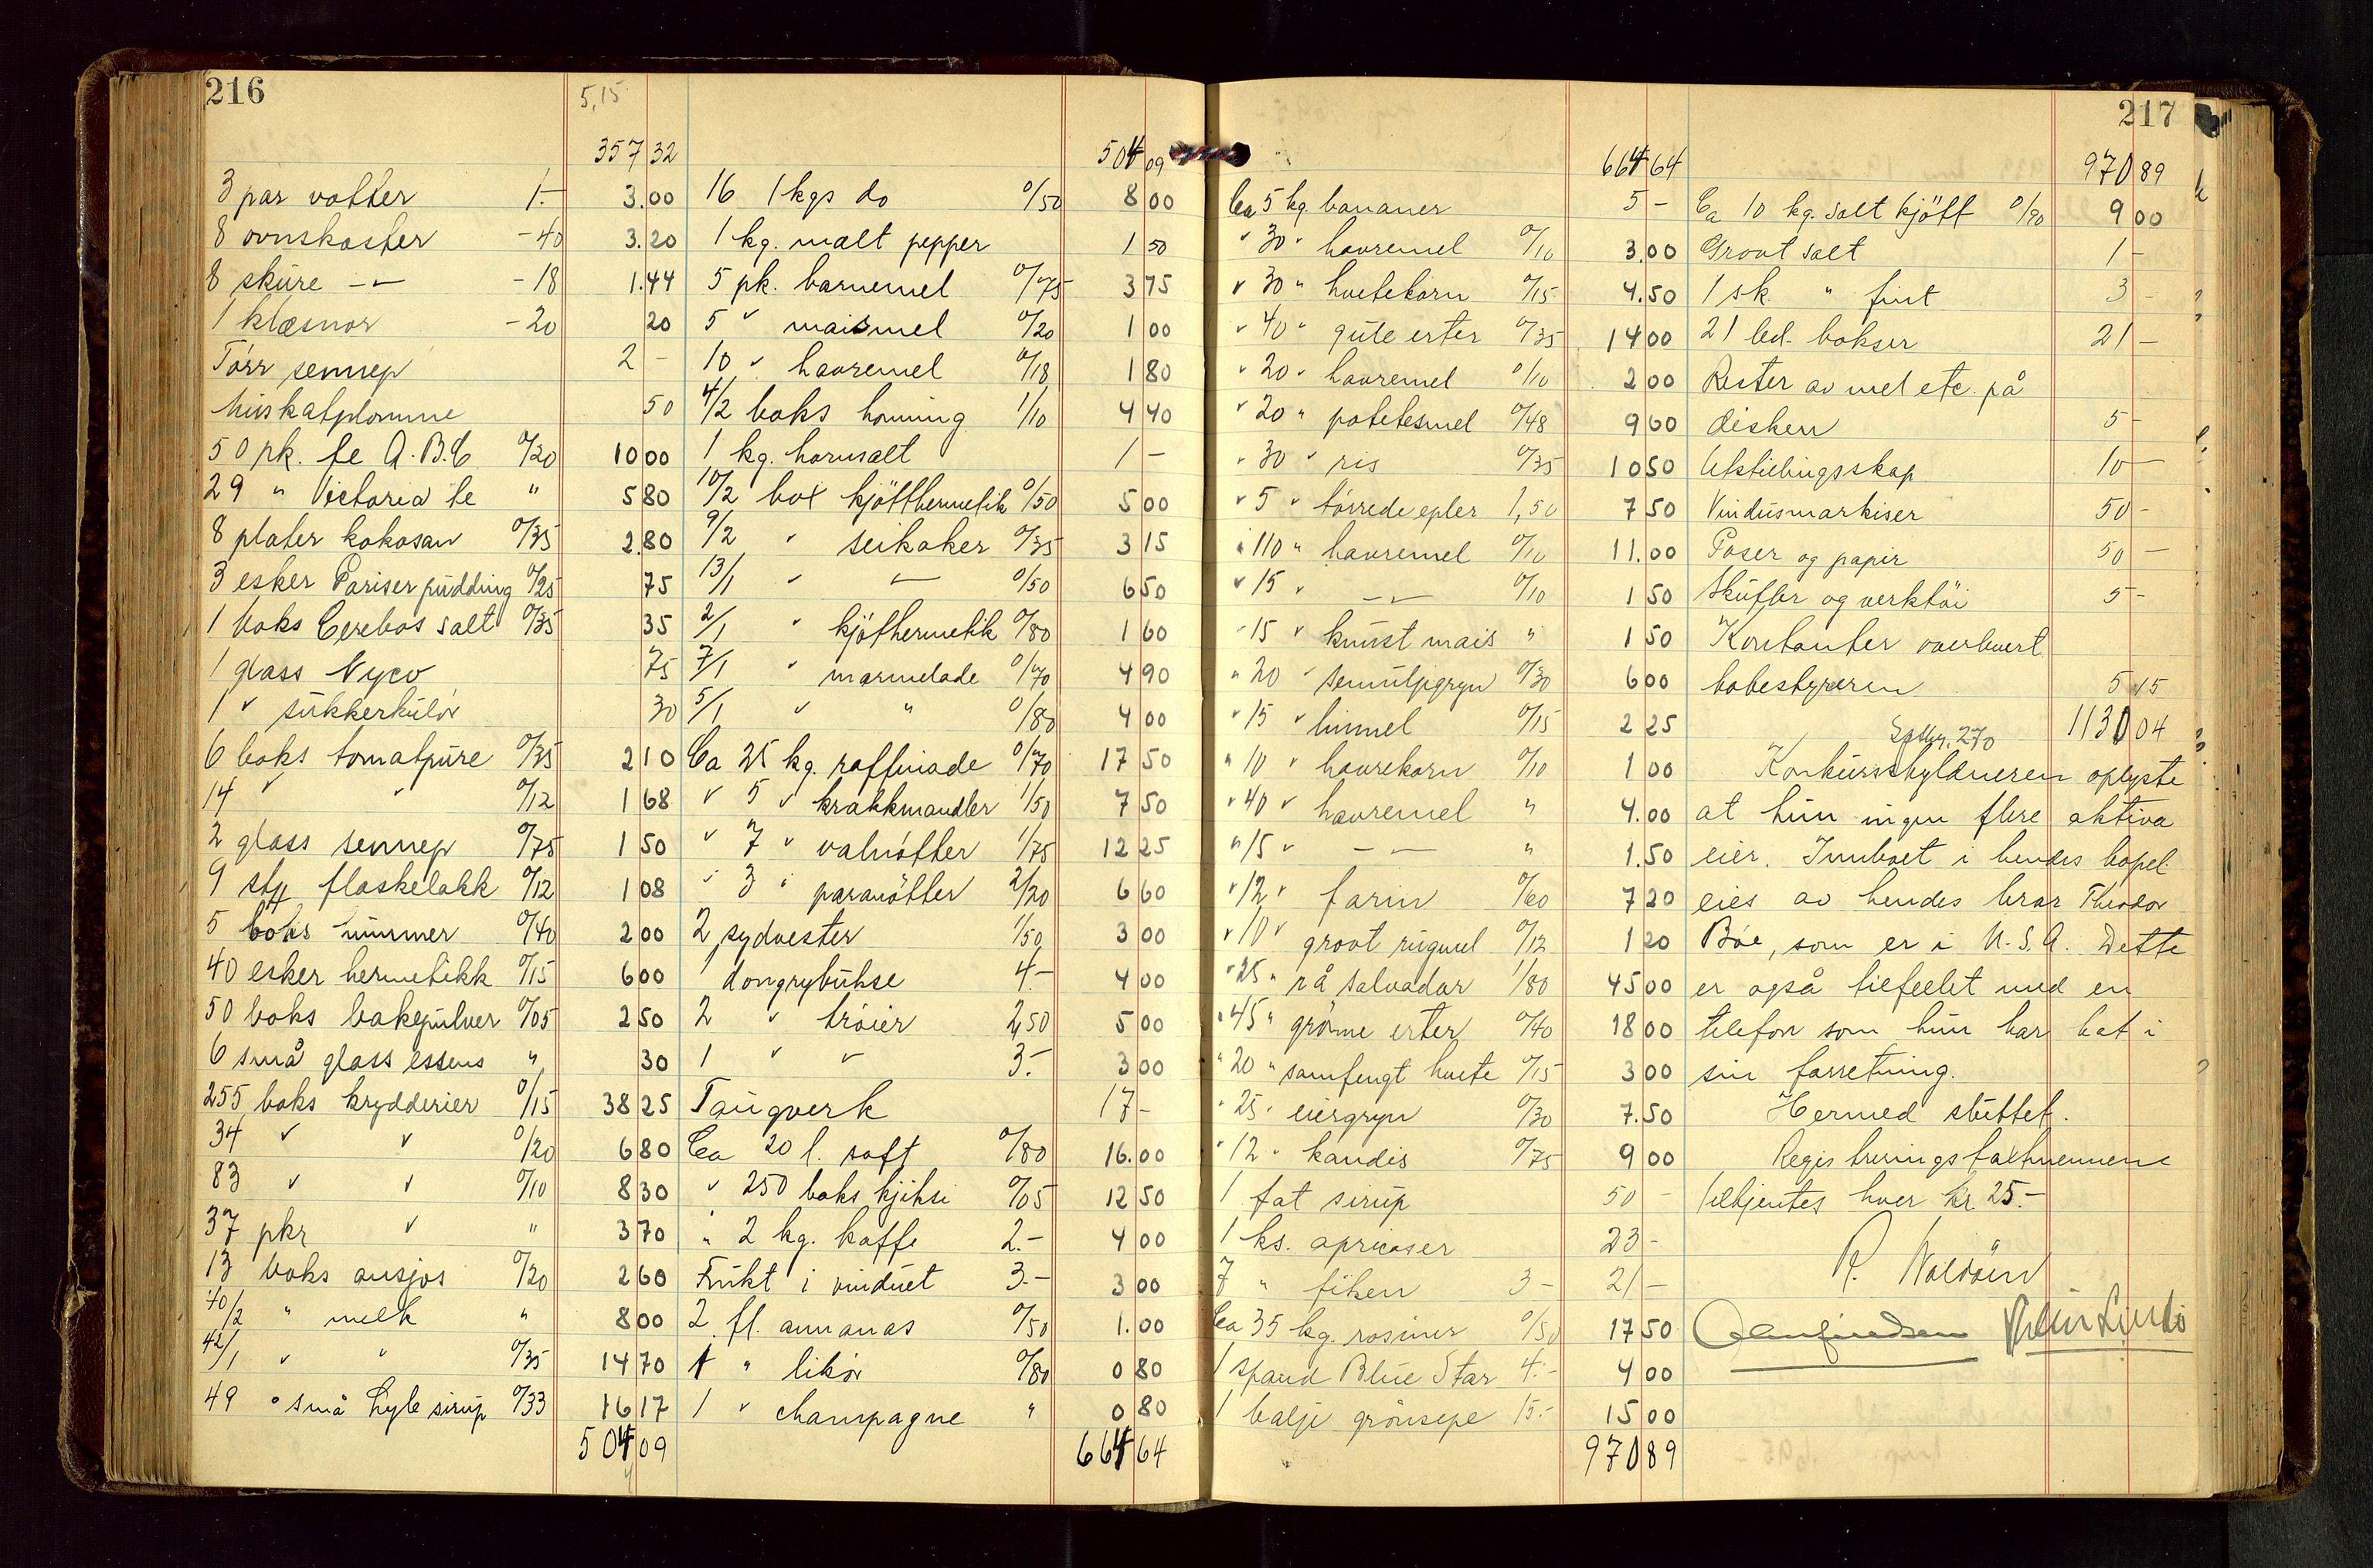 216
5,15
357 32
3 par votter 1.- 3.00
8 ovnskoster -40 3.20
8 skure -"- -18 1.44
1 klæsnor -20 20
Tørr sennep 2 -
Muskatplomme 50
50 pk. te A.B.C. 0/20 10 00
29 " Victoria te " 5 80
8 plater kokosan 0/35 2.80
3 esker Pariserpudding 0/25 75
1 boks Cerebos salt 0/35 35
1 glass Nyco 75
1 " sukkerkulör 30
6 boks tomatpure 0/35 2 10
14 " " 0/12 1 68
2 glass sennep 0/75 1 50
9 stg flaskelakk 0/12 1 08
5 boks hummer 0/40 2 00
40 esker hermetikk 0/15 6 00
50 boks bakepulver 0/05 2 50
6 små glass essens " 30
255 boks krydderier 0/15 38 25
34 " " 0/20 6 80
83 " " 0/10 8 30
37 pkr " " 3 70
13 boks ansjos 0/20 2 60
40/2 " melk " 8 00
42/1 " " 0/35 14 70
49 " små Lyle sirup 0/33 16 17
504 09
504 09
16 1 kgs do 0/50 8 00
1 kg. malt pepper 1 50
5 pk. barnemel 0/75 3 75
5 " maismel 0/20 1 00
10 " havremel 0/18 1 80
4/2 boks honning 1/10 4 40
1 kg. hornsalt 1 -
10/2 box kjötthermetik 0/50 5 00
9/2 " seikaker 0/35 3 15
13/1 " -"- 0/50 6 50
2/1 " kjöthermetik 0/80 1 60
7/1 " marmelade 0/70 4 90
5/1 " " 0/80 4 00
Ca 25 kg. raffinade 0/70 17 50
" 5 " krakkmandler 1/50 7 50
" 7 " valnötter 1/75 12 25
" 3 " paranötter 2/20 6 60
2 sydvester 1/50 3 00
1 dongrybukse 4.- 4 00
2 " tröier 2,50 5 00
1 " " 3.- 3 00
Taugverk 17-
Ca 20 l. saft 0/80 16.00
" 250 boks kjiksi 0/05 12 50
" 2 kg. kaffe 2.- 4 00
Frukt i vinduet 3.- 3 00
2 fl. annanas 0/50 1.00
1 " likör 0/80 0 80
1 " champagne " 0 80
664 64
217
664 64
Ca 5 kg. bananer 5 -
" 30 " havremel 0/10 3.00
" 30 " hvetekorn 0/15 4.50
" 40 " gule erter 0/35 14 00
" 20 " havremel 0/10 2 00
" 20 " potetesmel 0/48 9 60
" 30 " ris 0/35 10 50
" 5 " törrede epler 1,50 7 50
" 110 " havremel 0/10 11.00
" 15 " -"- 0/10 1 50
" 15 " knust mais " 1 50
" 20 " semuljegryn 0/30 6 00
" 15 " linmel 0/15 2 25
" 10 " havrekorn 0/10 1 00
" 40 " havremel " 4.00
" 15 " -"- " 1.50
" 12 " farin 0/60 7 20
" 10 " grovt rugmel 0/12 1 20
" 25 " rå Salvador 1/80 45 00
" 45 " grönne erter 0/40 18 00
" 20 " samfengt hvete 0/15 3 00
" 25 " eiergryn 0/30 7.50
" 12 " kandis 0/75 9 00
1 fat sirup 50 -
1 ks. aprikoser 23 -
7 " fiken 3- 21 -
Ca 35 kg. rosiner 0/50 17 50
1 spand Blue Star 4.- 4 00
1 balje grönsepe 15.- 15 00
970 89
970 89
Ca 10 kg. salt kjött 0/90 9 00
Grovt salt 1 -
1 sk. " fint 3 -
21 led. bokser 21 -
Rester av mel etc. på
disken 5 -
Utstillingsskap 10 -
Vindusmarkiser 50 -
Poser og papir 50 -
Skuffer og verktöi 5 -
Kontanter overlevert
bobestyreren 5 15
1130 04
270
Konkursskyldneren oplyste
at hun ingen flere aktiva
eier. Innboet i hendes bopel
eies av hendes bror Theodor
Böe, som er i U.S.A. Dette
er også tilfellet med en
telefon som hun har hat i
sin forretning.
Hermed sluttet.
Registreringsfaltmennene
tilkjentes hver kr. 25.-